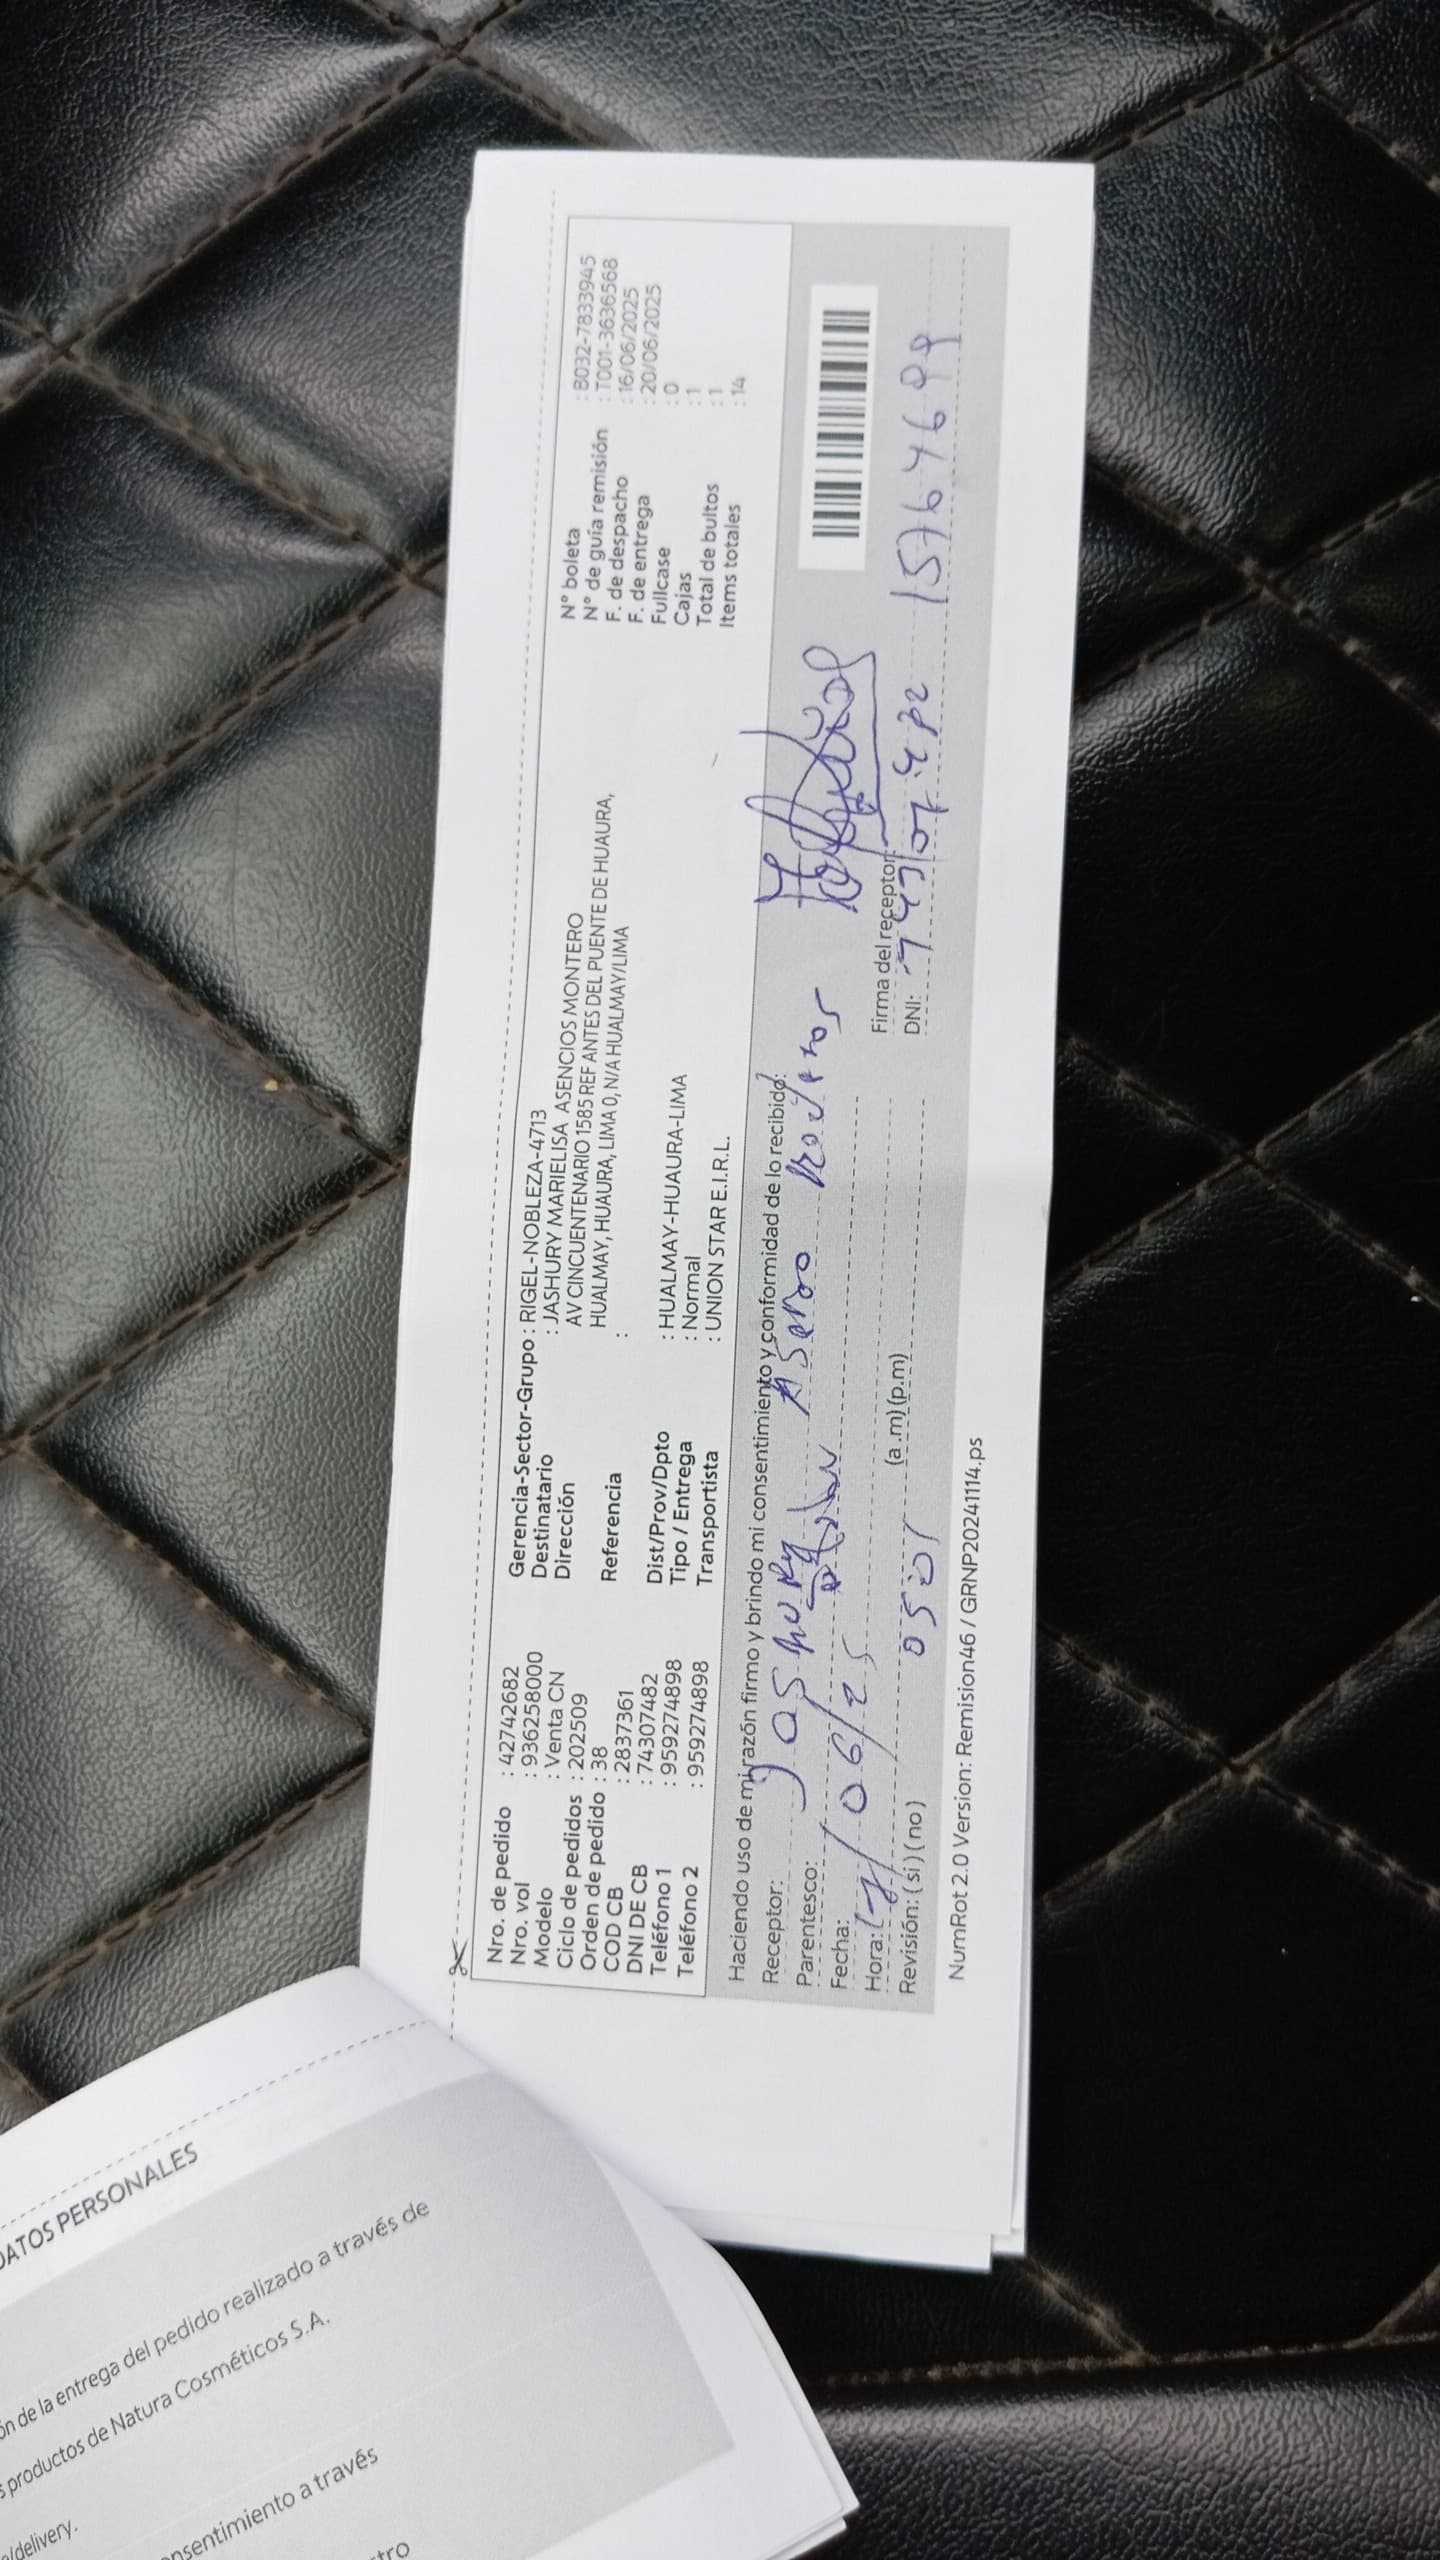 Nro. de pedido : 42742682
Nro. vol : 936258000
Modelo : Venta CN
Ciclo de pedidos : 202509
Orden de pedido : 38
COD CB : 2837361
DNI DE CB : 74307482
Teléfono 1 : 959274898
Teléfono 2 : 959274898
Gerencia-Sector-Grupo : RIGEL-NOBLEZA-4713
Destinatario : JASHURY MARIELISA ASENCIOS MONTERO
Dirección AV CINCUENTENARIO 1585 REF ANTES DEL PUENTE DE HUAURA,
HUALMAY, HUAURA, LIMA 0, N/A HUALMAY/LIMA
Referencia :
Dist/Prov/Dpto : HUALMAY-HUAURA-LIMA
Tipo / Entrega : Normal
Transportista : UNION STAR E.I.R.L.
N° boleta : B032-7833945
N° de guía remisión : T001-3636568
F. de despacho : 16/06/2025
F. de entrega : 20/06/2025
Fullcase : 0
Cajas : 1
Total de bultos : 1
Items totales : 14
Haciendo uso de mi razón firmo y brindo mi consentimiento y conformidad de lo recibido:
Receptor:
Parentesco:
Fecha: /06/25
Hora: (a .m) (p.m)
Revisión: ( si ) ( no )
Firma del receptor:
DNI:
NumRot 2.0 Version: Remision46 / GRNP20241114.ps
DATOS PERSONALES
ón de la entrega del pedido realizado a través de
s productos de Natura Cosméticos S.A.
/delivery.
nsentimiento a través
tro